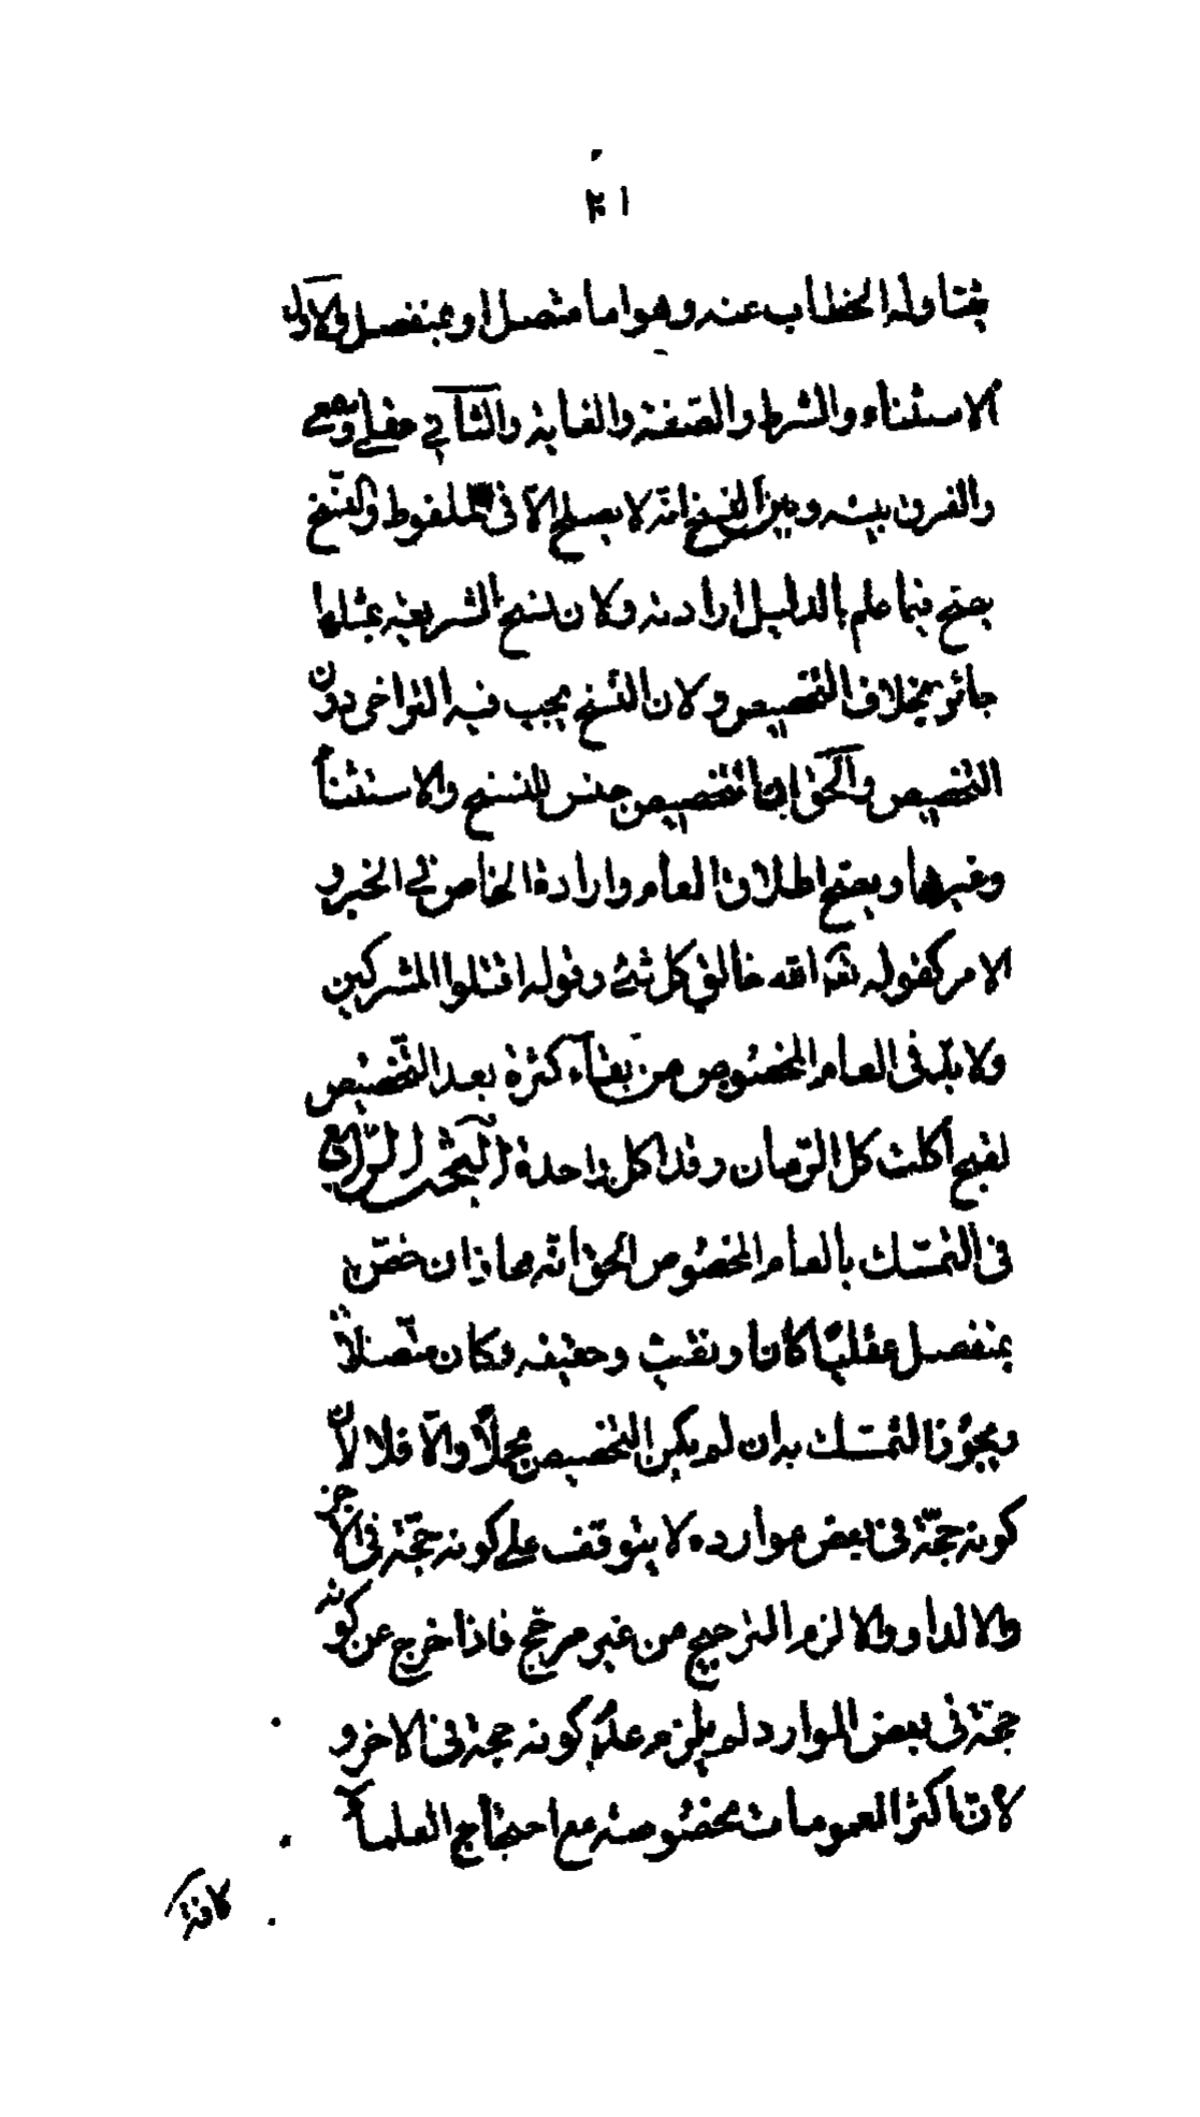 ٢١
يتناوله الخطاب عنه وهو اما متصل او بمنفصل والاول
الاستثناء والشرط والصفة والغاية والثاني عقلي وسمعي
والفرق بينه وبين النسخ انه لا يصلح الا فى الملفوظ والنسخ
يصح فيما علم بالدليل ارادته ولان نسخ الشريعة بمثلها
جائز بخلاف التخصيص ولان النسخ يجب فيه التراخى دون
التخصيص والحق ان التخصيص جنس للنسخ والاستثنا
وغيرها ويصح اطلاق العام وارادة الخاص فى الخبر و
الامر كقوله تعه الله خالق كل شئ وقوله اقتلوا المشركين
ولابد فى العام المخصوص من بقاء كثرة بعد التخصيص
لقبح اكلت كل الرمان وقد اكل واحدة البحث الرابع
فى التمسك بالعام المخصوص الحق انه مجاز ان خص
بمنفصل عقليا كان او نقليا وحقيقة وكان متصلا
ويجوز التمسك به ان لم يكن التخصيص مجملا والا فلا لان
كونه حجة فى بعض موارده لا يتوقف على كونه حجة فى الاخر
والا لدار والا لزم الترجيح من غير مرجح فاذا خرج عن كونه
حجة فى بعض الموارد لم يلزم عدم كونه حجة فى الاخر و
لان اكثر العمومات مخصوصة مع احتجاج العلماء
كافة